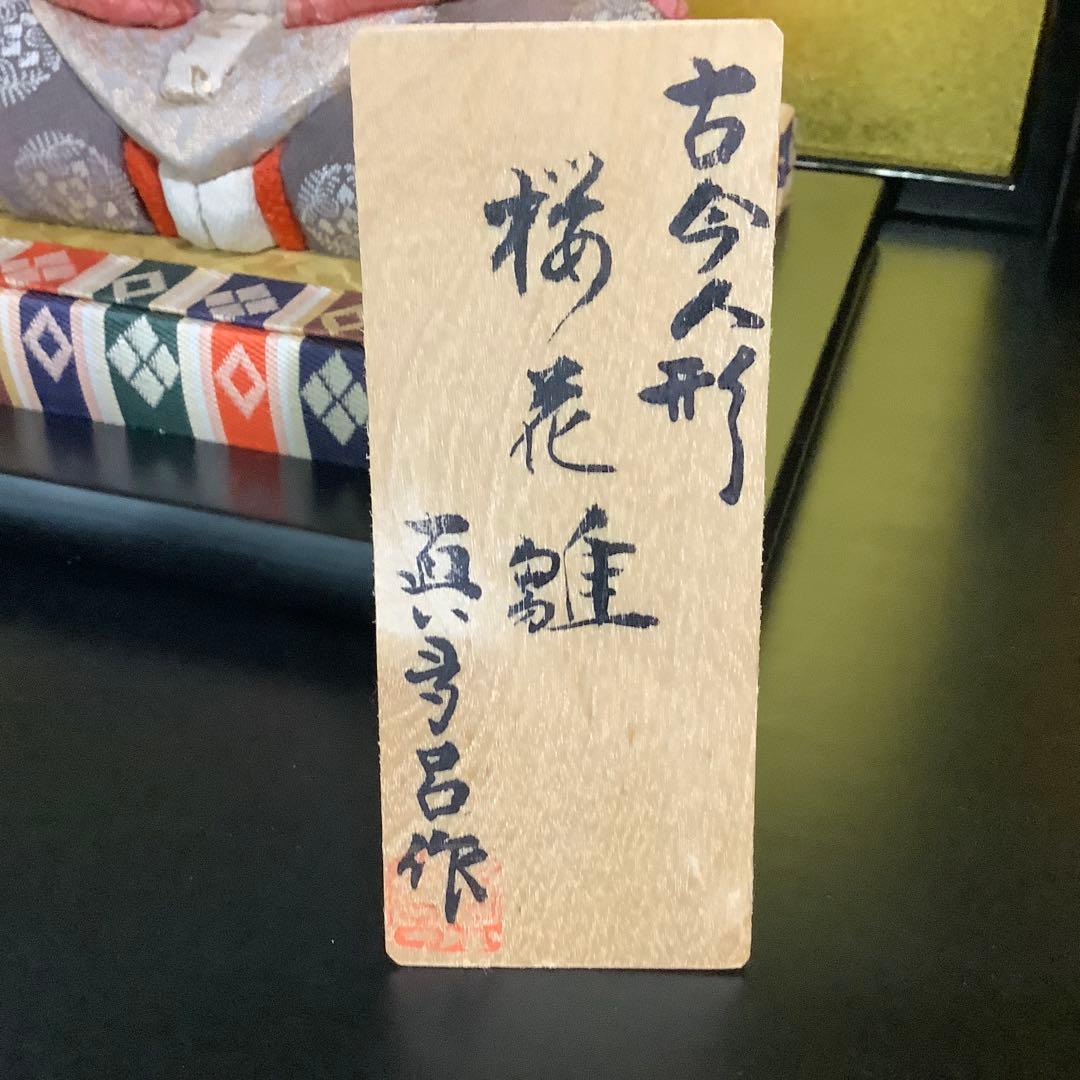 古今人形
桜花雛
真多呂作